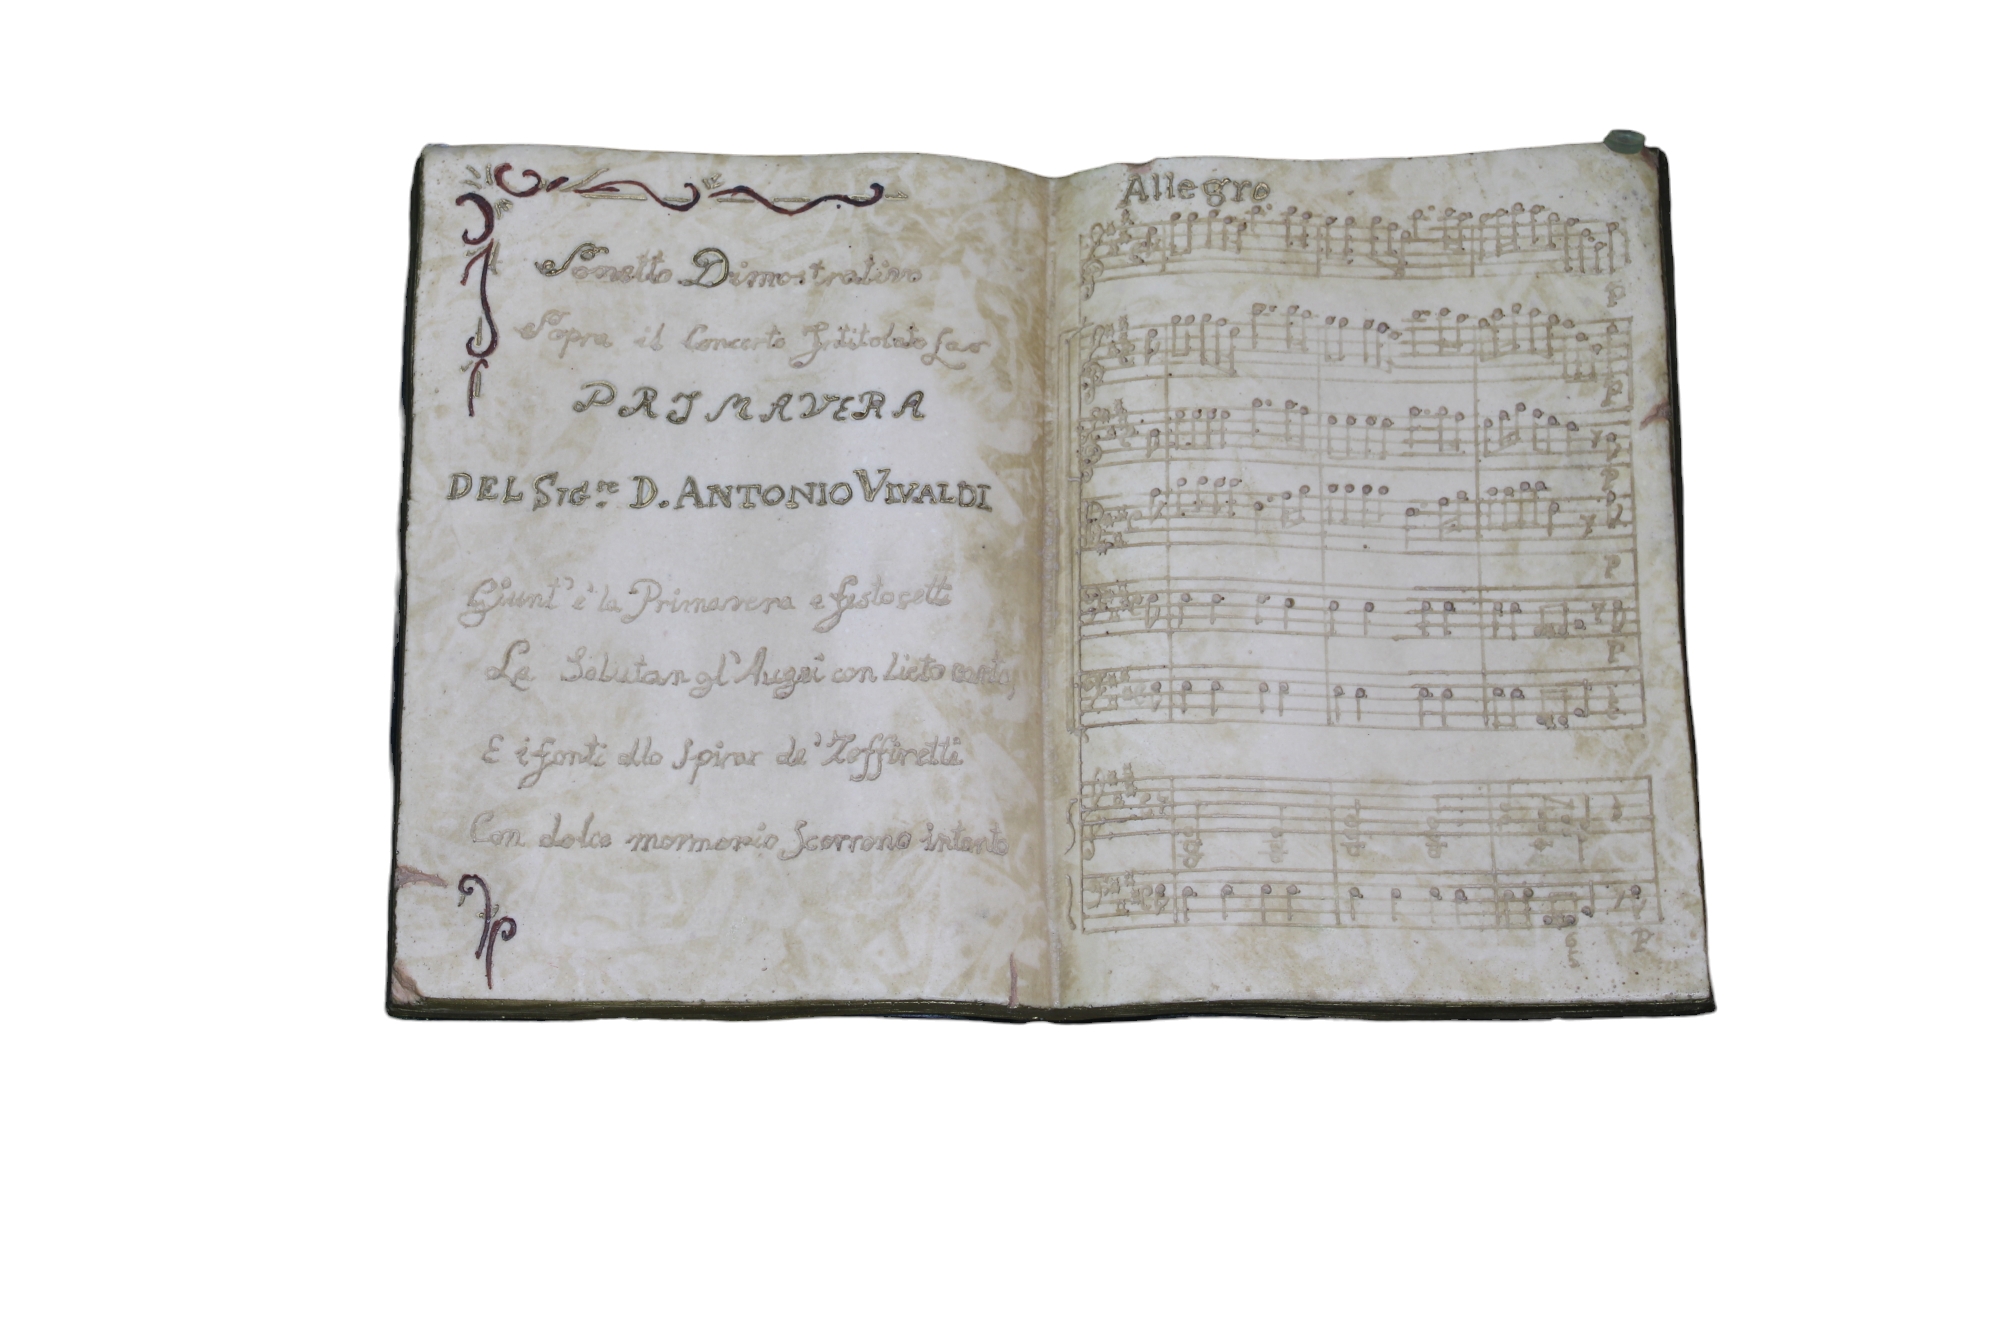 Sonetto Dimostrativo
Sopra il Concerto Intitolato La
PRIMAVERA
DEL SIG.re D. ANTONIO VIVALDI
Giunt' è la Primavera e festosetti
La Salutan gl' Augei con lieto canto,
E i fonti allo Spirar de' Zeffiretti
Con dolce mormorio Scorrono intanto
Allegro
P
P
P
P
P
P